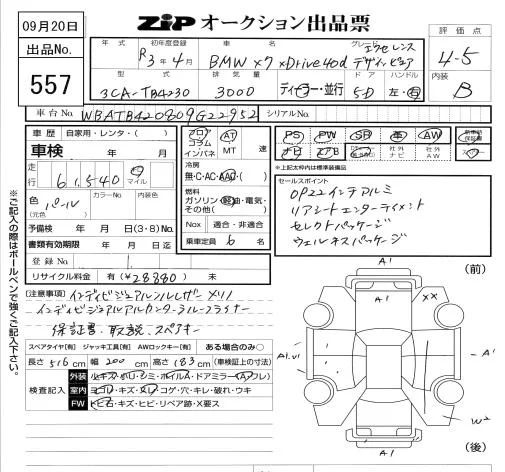 09月20日
ZIP オークション出品票
出品No.
557
年式 初年度登録 車名 グレード
R3年4月 BMW X7 xDrive40d エクセレンス デザインピュア
評価点
4.5
型式 排気量 ドア ハンドル
3CA-TB4230 3000 ディーラー・並行 5D 左・右
内装
B
車台No. WBATB420809G22952 シリアルNo.
車歴 自家用・レンタ・( )
車検 年 月
走行 61,540 キロ マイル
色 パール (元色) カラーNo 内装色
予備検 年 月 日(3・8)No.
書類有効期限 年 月 日迄
登録No
リサイクル料金 有(¥28880) 未
フロア コラム インパネ AT MT 速
冷房
無・C・AC・AAC・( )
燃料
ガソリン・軽油・電気・その他( )
Nox 適合・非適合
乗車定員 6 名
PS PW SR 革 AW 新車時保証書
ナビ エアB 社外ナビ 社外AW
*上記太枠内は標準装備品
セールスポイント
OP22インチアルミ
リアシートエンターテイメント
セレクトパッケージ
ウェルネスパッケージ
※ご記入の際はボールペンで強くご記入下さい。
[注意事項] インディビジュアルフルレザーメリノ
インディビジュアルアルカンターラルーフライナー
保証書、取説、スペアキー
スペアタイヤ[有] ジャッキ工具[有] AWロックキー[有] ある場合のみ○
長さ 516cm 幅 200cm 高さ 183cm (車検証上の寸法)
検査記入
外装
室内 ヨゴレ・キズ・スレ・コゲ・穴・キレ・破れ・ウキ
FW トビ石・キズ・ヒビ・リペア跡・X要ス
(前)
A1
A1
XX
A1
W2
A1
(後)